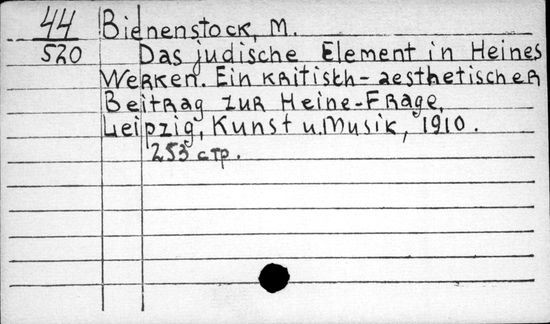 44
520
Bienenstock, M.
Das judische Element in Heines
Werken. Ein kritisch-aesthetischer
Beitrag zur Heine-Frage,
Leipzig, Kunst u. Musik, 1910.
253 стр.